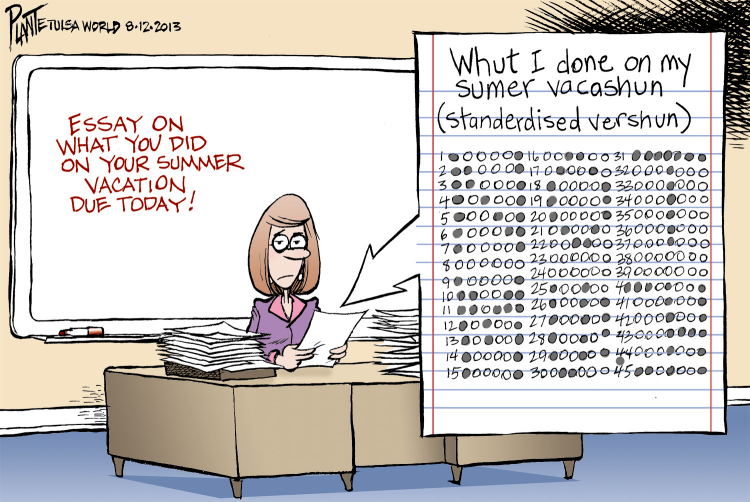 PLANTE TULSA WORLD 8·12·2013
ESSAY ON
WHAT YOU DID
ON YOUR SUMMER
VACATION
DUE TODAY!
Whut I done on my
sumer vacashun
(standerdised vershun)
1 16 31
2 17 32
3 18 33
4 19 34
5 20 35
6 21 36
7 22 37
8 23 38
9 24 39
10 25 40
11 26 41
12 27 42
13 28 43
14 29 44
15 30 45